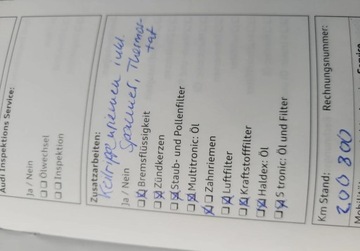 Audi Inspektions Service:
Ja / Nein
Ölwechsel
Inspektion
Zusatzarbeiten:
Keilrippenriemen inkl.
Spanner, Thermos-
tat
Ja / Nein
Bremsflüssigkeit
Zündkerzen
Staub- und Pollenfilter
Multitronic: Öl
Zahnriemen
Luftfilter
Kraftstofffilter
Haldex: Öl
S tronic: Öl und Filter
Km Stand:
200 800
Rechnungsnummer: